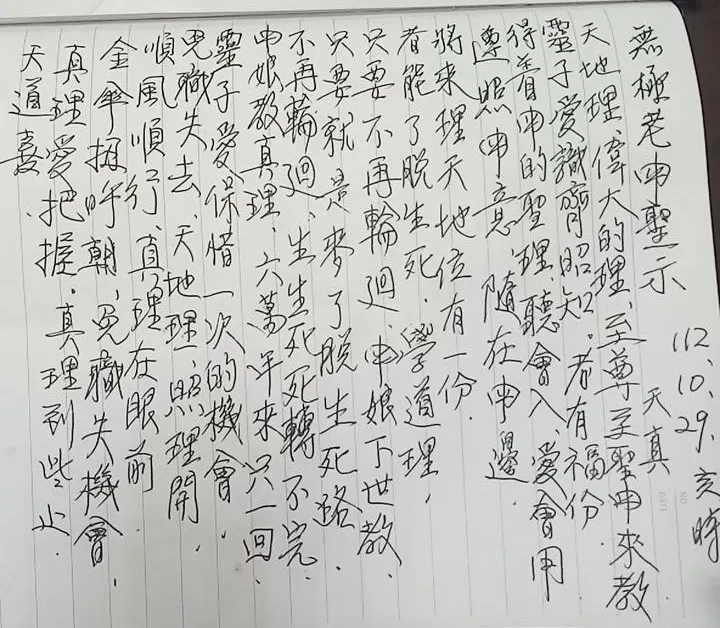 無極老申聖示 天真
112.10.29.亥時
天地理、偉大的理、至尊至聖申來教
靈子愛識寶昭知。者有福份
得著申的聖理、聽會入、愛會用
遵照申意 隨在申邊
將來理天地位有一份.
者能了脫生死.學道理,
只要不再輪迴、申娘下世教.
只要就是來了脫生死路
不再輪迴、生生死死轉不完.
申娘教真理、六萬年來只一回.
靈子愛保惜一次的機會.
免職失去、天地理、照理開
順風順行、真理在眼前
金傘招呼朝、免職失機會.
真理愛把握.真理到此止.
天道喜.